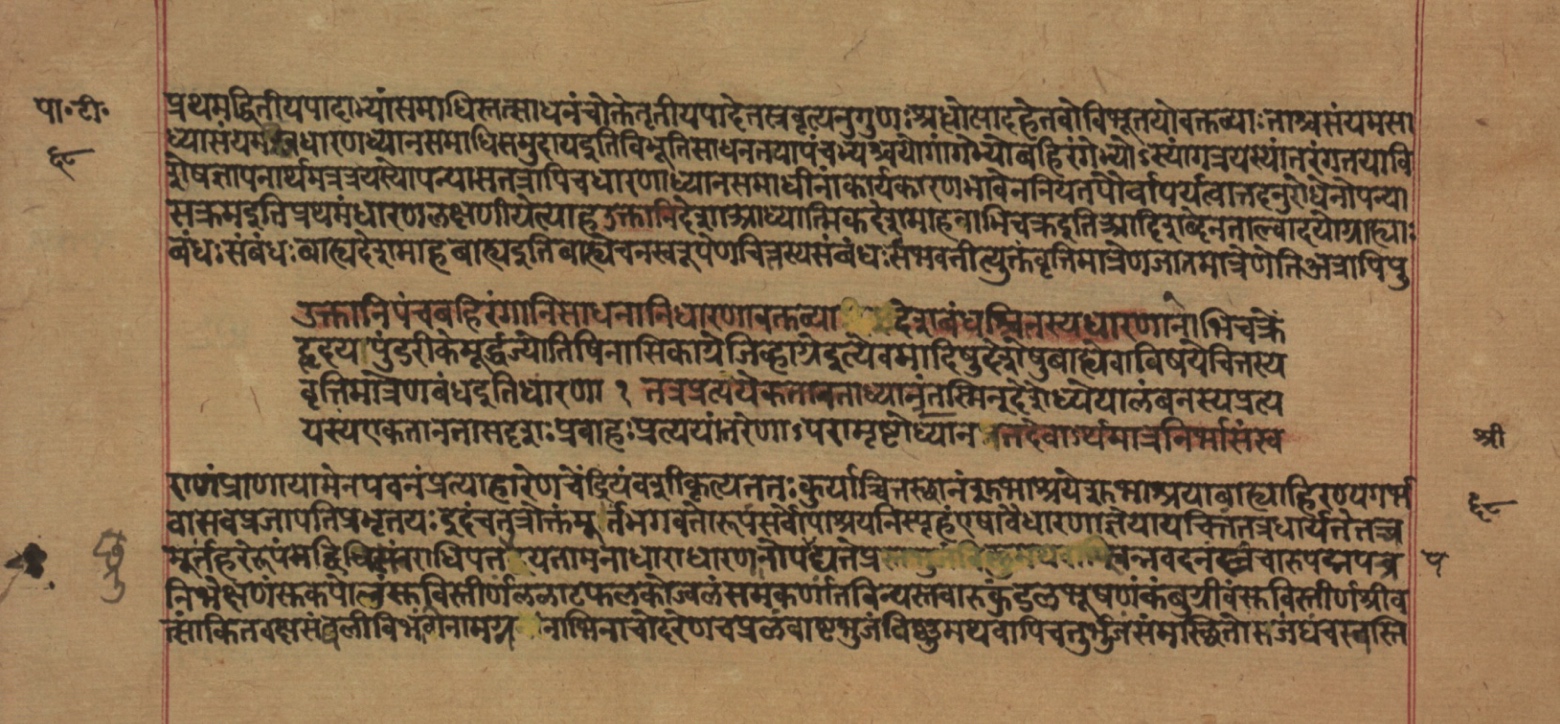 पा॰टी॰
६८
प्रथमद्वितीयपादाभ्यांसमाधिस्तत्साधनंचोक्तेतृतीयपादेतत्प्रवृत्यनुगुणाःश्रद्धोत्पादहेतवोविभूतयोवक्तव्याःताश्चसंयमसा
ध्यासंयमश्चधारणध्यानसमाधिसमुदायइतिविभूतिसाधनतयापंचभ्यश्चयोगांगेभ्योबहिरंगेभ्योऽस्यांगत्रयस्यांतरंगतयावि
शेषज्ञापनार्थमत्रत्रयस्योपन्यासतत्रापिचधारणाध्यानसमाधीनांकार्यकारणभावेननियतपौर्वापर्यत्वात्तदनुरोधेनोपन्या
सक्रमइतिप्रथमंधारणलक्षणीयेत्याहउक्तानिदेशआध्यात्मिकदेशमाहनाभिचक्रइतिआदिशब्देनताल्वादयोग्राह्याः
बंधःसंबंधःबाह्यदेशमाहबाह्यइतिबाह्येचनस्वरूपेणचित्तस्यसंबंधःसंभवतीत्युक्तंवृत्तिमात्रेणज्ञानमात्रेणेतिअत्रापिपु
उक्तानिपंचबहिरंगानिसाधनानिधारणावक्तव्या देशबंधश्चित्तस्यधारणानाभिचक्रे
हृदयपुंडरीकेमूर्द्धज्योतिषिनासिकाग्रेजिव्हाग्रेइत्येवमादिषुदेशेषुबाह्येवाविषयेचित्तस्य
वृत्तिमात्रेणबंधइतिधारणा १ तत्रप्रत्ययैकतानताध्यानंतस्मिन्देशेध्येयालंबनस्यप्रत्य
यस्यएकतानतासदृशःप्रवाहःप्रत्ययांतरेणाऽपरामृष्टोध्यान तदेवाऽर्थमात्रनिर्भासंस्व
श्री
राणंप्राणायामेनपवनंप्रत्याहारेणचेंद्रियंवशीकृत्यततःकुर्याच्चित्तस्थानंशुभाश्रयेशुभाश्रयाबाह्याहिरण्यगर्भ
६८
वासवप्रजापतिप्रभृतयःइदंचतत्रोक्तंमूर्तंभगवतोरूपंसर्वोपाश्रयनिस्पृहंएषावैधारणाज्ञेयायच्चित्तंतत्रधार्यतेतच्च
मूर्तंहरेरूपं नराधिपत यतामनाधाराधारणनोपपद्यतेप्र न्नवदनं चारुपद्मपत्र
प
निभेक्षणंसुकपोलंसुविस्तीर्णललाटफलकोज्वलंसमकर्णांतविन्यस्तचारुकुंडलभूषणंकंबुग्रीवंसुविस्तीर्णश्रीव
त्सांकितवक्षसंवलीविभंगिनामग्न नाभिनाचोदरेणचप्रलंबाष्टभुजंविष्णुमथवापिचतुर्भुजंसमस्थितोरुजंघंचस्वस्ति